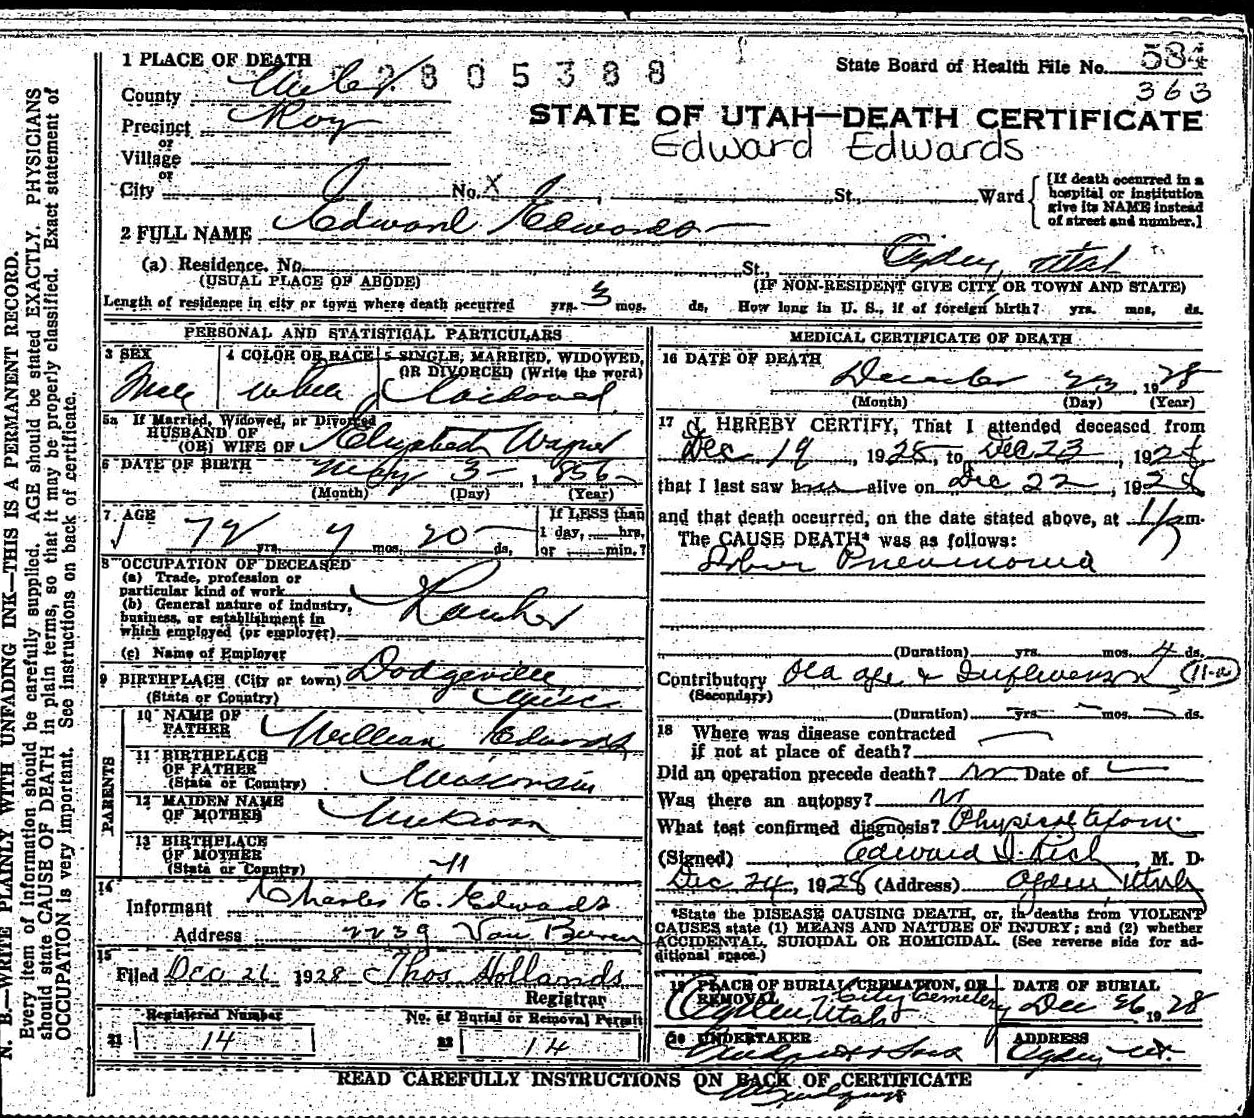 1 PLACE OF DEATH
2805388
State Board of Health File No. 584
363
County Weber
STATE OF UTAH—DEATH CERTIFICATE
Precinct Roy
or
Village
or
Edward Edwards
City No. X St., Ward
[If death occurred in a hospital or institution give its NAME instead of street and number.]
2 FULL NAME Edward Edwards
(a) Residence. No. St., Ogden, Utah
(USUAL PLACE OF ABODE) (IF NON-RESIDENT GIVE CITY OR TOWN AND STATE)
Length of residence in city or town where death occurred yrs. 3 mos. ds. How long in U. S., if of foreign birth? yrs. mos. ds.
PERSONAL AND STATISTICAL PARTICULARS
3 SEX Male
4 COLOR OR RACE White
5 SINGLE, MARRIED, WIDOWED, OR DIVORCED (Write the word)
Widowed
5a If Married, Widowed, or Divorced
HUSBAND OF
(OR) WIFE OF Elizabeth Wagner
6 DATE OF BIRTH May 3 1856
(Month) (Day) (Year)
7 AGE 72 yrs. 7 mos. 20 ds.
If LESS than
1 day, hrs.
or min.?
8 OCCUPATION OF DECEASED
(a) Trade, profession or
particular kind of work
Rancher
(b) General nature of industry,
business, or establishment in
which employed (or employer)
(c) Name of Employer
9 BIRTHPLACE (City or town) Dodgeville
(State or Country) Wisc
PARENTS
10 NAME OF
FATHER William Edwards
11 BIRTHPLACE
OF FATHER
(State or Country) Wisconsin
12 MAIDEN NAME
OF MOTHER Unknown
13 BIRTHPLACE
OF MOTHER
(State or Country) "
14
Informant Charles E. Edwards
Address 2239 Van Buren
15
Filed Dec 26 1928 Thos Hollands
Registrar
Registered Number No. of Burial or Removal Permit
21 14 22 14
MEDICAL CERTIFICATE OF DEATH
16 DATE OF DEATH
December 23, 1928
(Month) (Day) (Year)
17 I HEREBY CERTIFY, That I attended deceased from
Dec 19, 1928, to Dec 23, 1928
that I last saw him alive on Dec 22, 1928
and that death occurred, on the date stated above, at m.
The CAUSE DEATH* was as follows:
Lobar Pneumonia
(Duration) yrs. mos. 4 ds.
Contributory Old age & Influenza 11-a
(Secondary)
(Duration) yrs. mos. ds.
18 Where was disease contracted
if not at place of death?
Did an operation precede death? No Date of
Was there an autopsy? N
What test confirmed diagnosis? Physical Exam
(Signed) Edward I. Rich, M. D.
Dec 24, 1928 (Address) Ogden Utah
*State the DISEASE CAUSING DEATH, or, in deaths from VIOLENT
CAUSES state (1) MEANS AND NATURE OF INJURY; and (2) whether
ACCIDENTAL, SUICIDAL OR HOMICIDAL. (See reverse side for ad-
ditional space.)
19 PLACE OF BURIAL, CREMATION, OR
REMOVAL City Cemetery
Ogden, Utah
DATE OF BURIAL
Dec 26 1928
20 UNDERTAKER
& Sons
ADDRESS
Ogden Ut.
READ CAREFULLY INSTRUCTIONS ON BACK OF CERTIFICATE
N. B.—WRITE PLAINLY WITH UNFADING INK—THIS IS A PERMANENT RECORD.
Every item of information should be carefully supplied. AGE should be stated EXACTLY. PHYSICIANS
should state CAUSE OF DEATH in plain terms, so that it may be properly classified. Exact statement of
OCCUPATION is very important. See instructions on back of certificate.